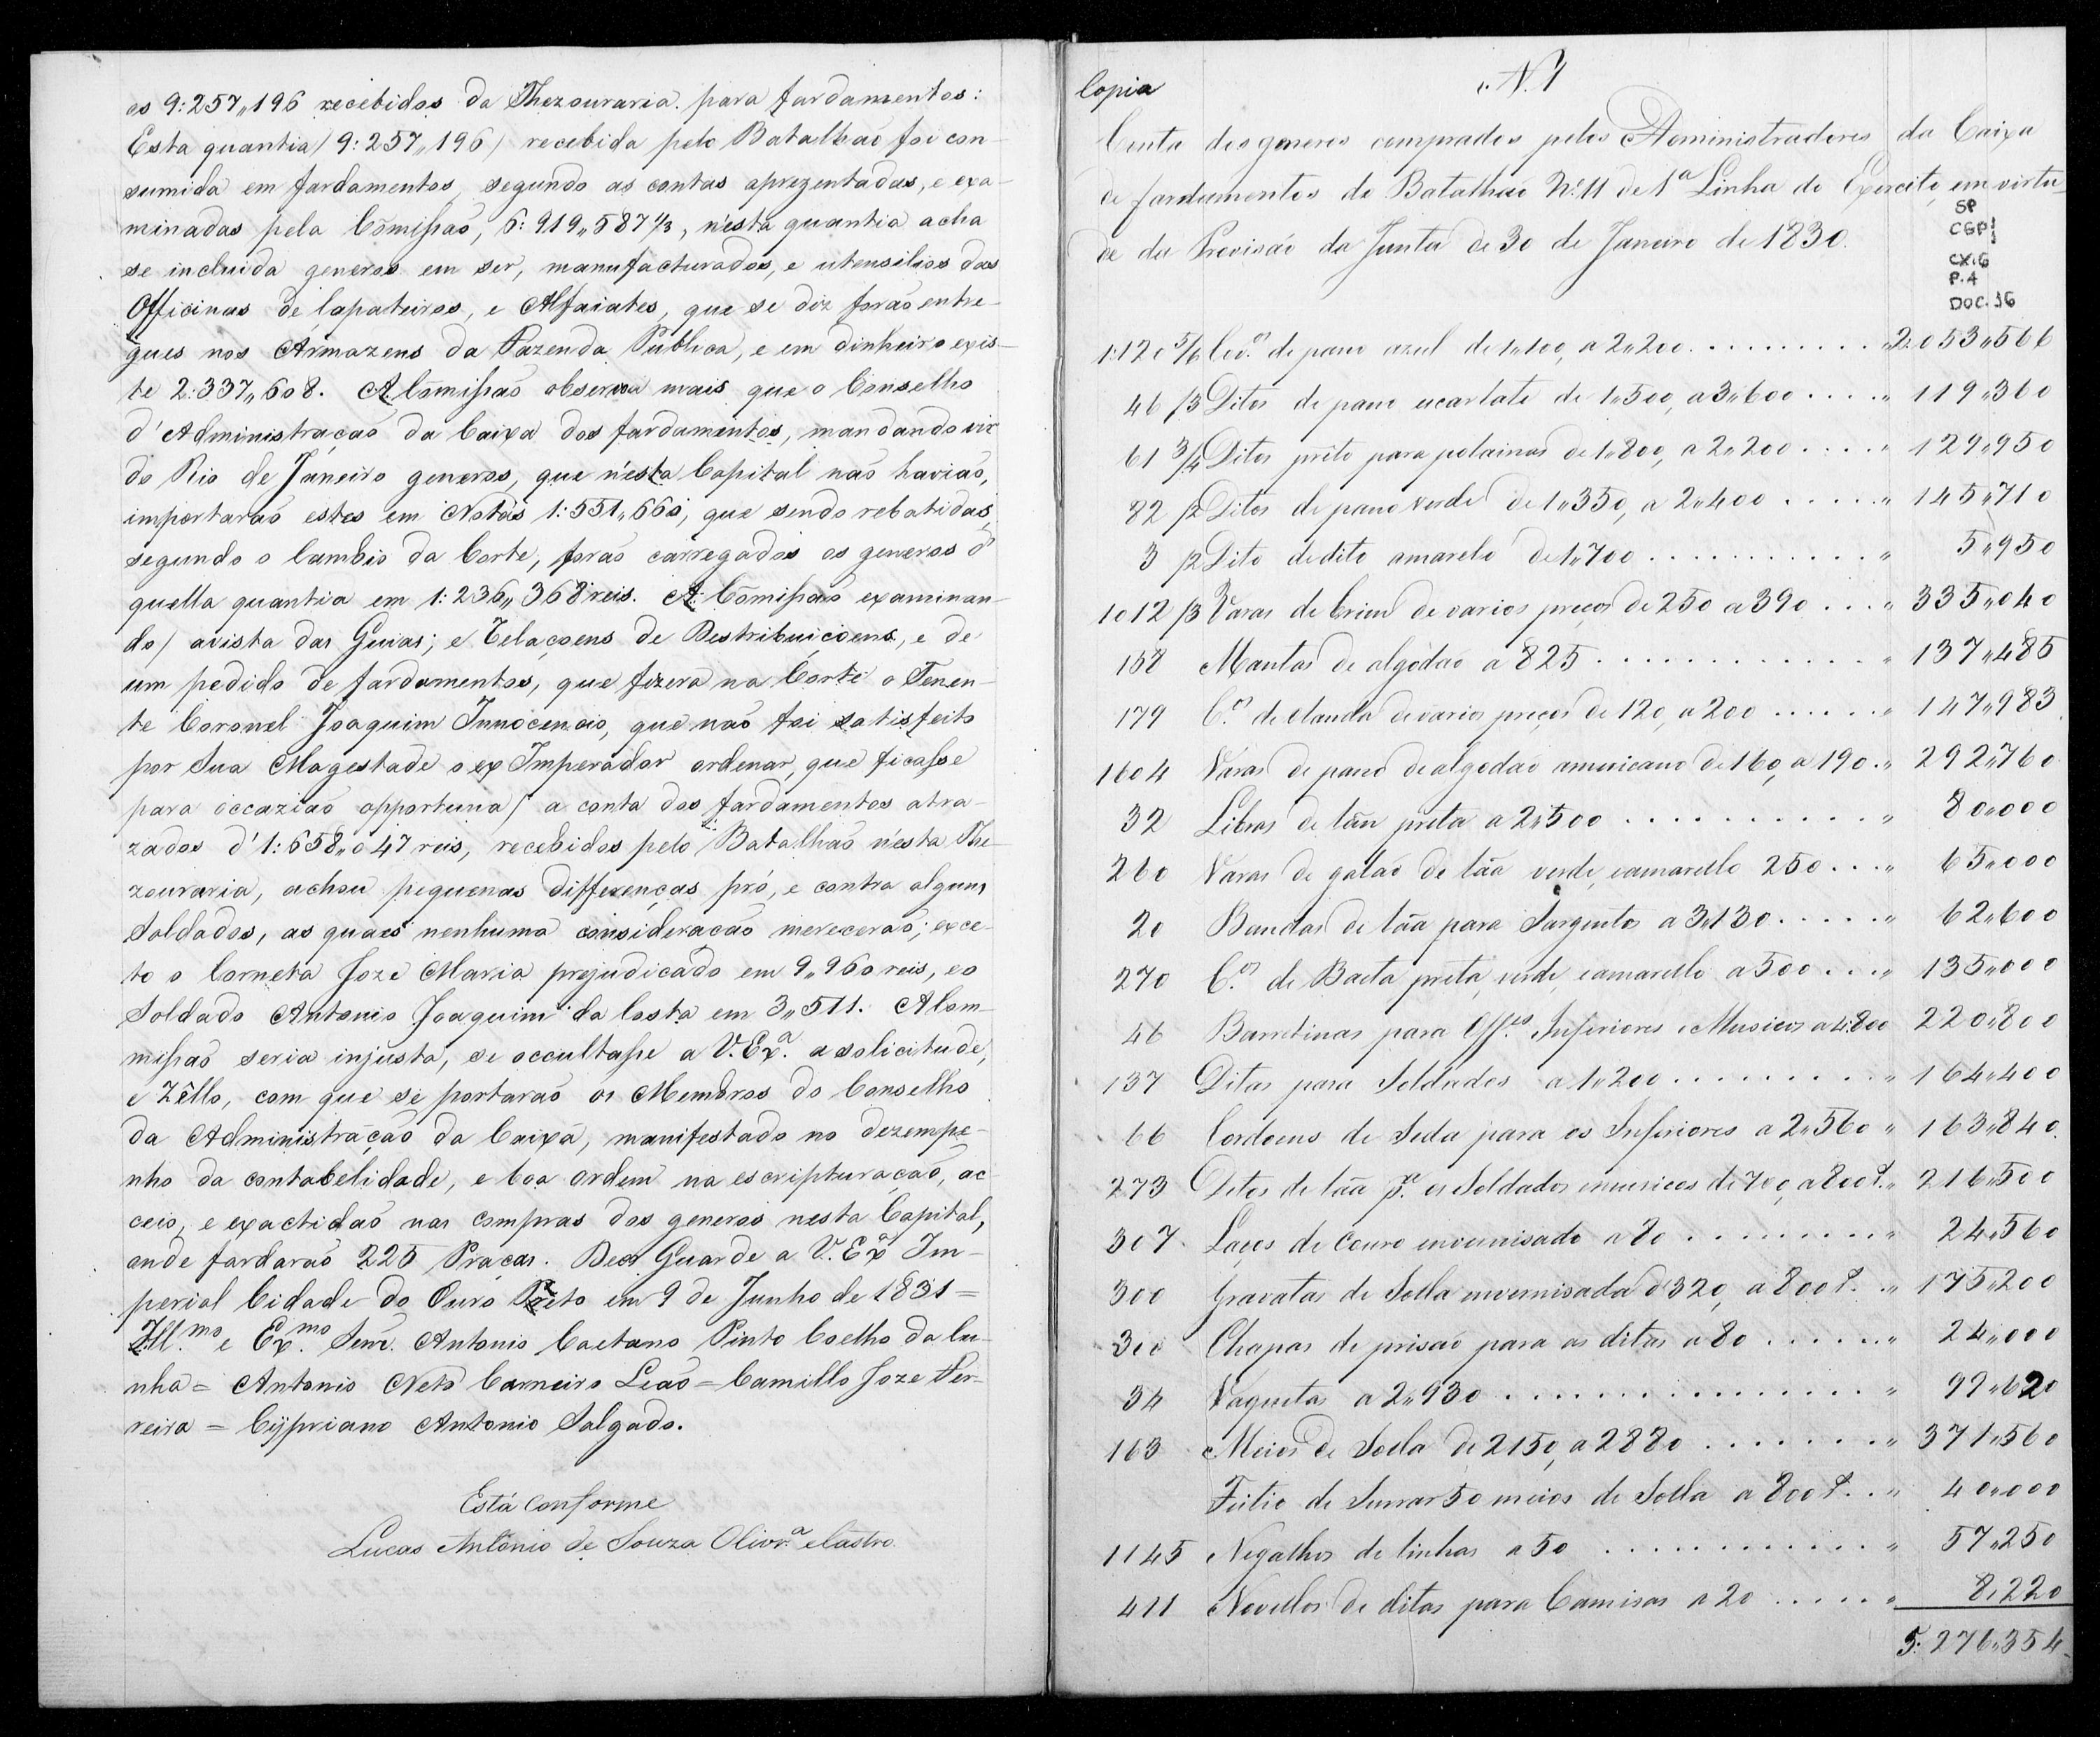 os 9:257,,196 recebidos da Thezouraria para fardamentos:
Esta quantia / 9:257,,196 / recebida pelo Batalhaõ foi con-
sumida em fardamentos, segundo as contas aprezentadas, e exa-
minadas pela Cõmissaõ, 6:919,,587 1/3, n'esta quantia acha
se incluida generos em ser, manufacturados, e utensilios das
Officinas de Çapateiros, e Alfaiates, que se diz foraõ entre-
gues nos Armazens da Fazenda Publica, e em dinheiro exis-
te 2:337,,608. A Cõmissaõ observa mais que o Conselho
d'Administraçaõ da Caixa dos fardamentos, mandando vir
do Rio de Janeiro generos, que n'esta Capital naõ haviaõ,
importaraõ estes em Notas 1:551,,660, que sendo rebatidas,
segundo o Cambio da Corte, foraõ carregados os generos d'
quella quantia em 1:236,,368 reis. A Cõmissaõ examinan-
do / avista das Guias; e Relaçoens de Destribuiçoens, e de
um pedido de fardamentos, que fizera na Corte o Tenen-
te Coronel Joaquim Innocencio, que naõ foi satisfeito
por Sua Magestade o ex Imperador ordenar, que ficasse
para occaziaõ opportuna / a conta dos fardamentos atra-
zados d'1:658,,047 reis, recebidos pelo Batalhaõ n'esta The-
zouraria, achou pequenas differenças pró, e contra alguns
Soldados, as quaes nenhuma consideracaõ mereceraõ; exce-
to o Corneta Joze Maria prejudicado em 9,,960 reis, eo
Soldado Antonio Joaquim da Costa em 3,,511. A Com-
missaõ seria injusta, se occultasse a V. Exª. a solicitude,
e Zêllo, com que se portaraõ os Membros do Conselho
da Administração da Caixa, manifestado no dezempe-
nho da contabelidade, e boa ordem na escripturaçaõ, ac-
ceio, e exactidaõ nas compras dos generos nesta Capital,
onde fardaraõ 225 Praças. Deos Guarde a V. Exª Im-
perial Cidade do Ouro Preto em 9 de Junho de 1831 =
Ill.mo e Ex.mo Senr. Antonio Caetano Pinto Coelho da Cu-
nha = Antonio Neto Carneiro Leaõ = Camillo Joze Fer-
reira = Cypriano Antonio Salgado.
Está Conforme
Lucas Antônio de Souza Olivr.ª e Castro
Copia
N. 1
Conta dos generos comprados pelos Administradores da Caixa
de fardamentos do Batalhaõ Nº 11 de 1ª Linha do Exercito, em virtu
de da Provisaõ da Junta de 30 de Janeiro de 1830.
SP
CGP1
CX.6
P.4
DOC.36
1:120 5/6 Cov.os de pano azul de 1,,100, a 2,,200 . . . . . . . . . 2:053,,566
46 /3 Ditos de pano escarlate de 1,,500, a 3,,600 . . . . ,, 119,,360
61 3/4 Ditos prêto para polainas de 1,,800, a 2,,200 . . . . ,, 129,,950
82 /2 Ditos de pano verde de 1,,350, a 2,,400 . . . . . ,, 145,,710
3 /2 Dito de dito amarelo de 1,,700 . . . . . . . . . . ,, 5,,950
1012 /3 Varas de brim de varios preços de 250 a 390 . . . ,, 335,,040
158 Mantas de algodaõ a 825 . . . . . . . . . . . . ,, 137,,485
179 C.os de olanda de varios preços de 120, a 200 . . . . . . ,, 147,,983
1604 Varas de pano de algodaõ americano de 160, a 190 . ,, 292,,760
32 Libras de lãa preta a 2,,500 . . . . . . . . . . ,, 80,,000
260 Varas de galaõ de lãa verde, e amarello 250 . . . ,, 65,,000
20 Bandas de lãa para Sargentos a 3,,130 . . . . . ,, 62,,600
270 C.os de Baeta preta, verde, e amarello a 500 . . . ,, 135,,000
46 Barretinas para Off.es Inferiores e Musicos a 4,,800 220,,800
137 Ditas para Soldados a 1,,200 . . . . . . . . . ,, 164,,400
66 Cordoens de Seda para os Inferiores a 2,,560 ,, 163,,840
273 Ditos de lãa p.ª os Soldados e musicos de 700, a 800 r. ,, 216,,500
307 Laços de Couro invernisado a 80 . . . . . . . . . ,, 24,,560
300 Gravatas de Solla invernisada d'320, a 800 r. . ,, 175,,200
300 Chapas de prisaõ para as ditas a 80 . . . . . . ,, 24,,000
34 Vaquetas a 2,,930 . . . . . . . . . . . . . . . ,, 99,,620
163 Meios de Sola de 2150, a 2880 . . . . . . . ,, 371,,560
Feitio de Surrar 50 meios de Solla a 800 r. . ,, 40,,000
1145 Negalhos de linhas a 50 . . . . . . . . . . . . ,, 57,,250
411 Novellos de ditas para Camisas a 20 . . . . . ,, 8,,220
5:276,,354